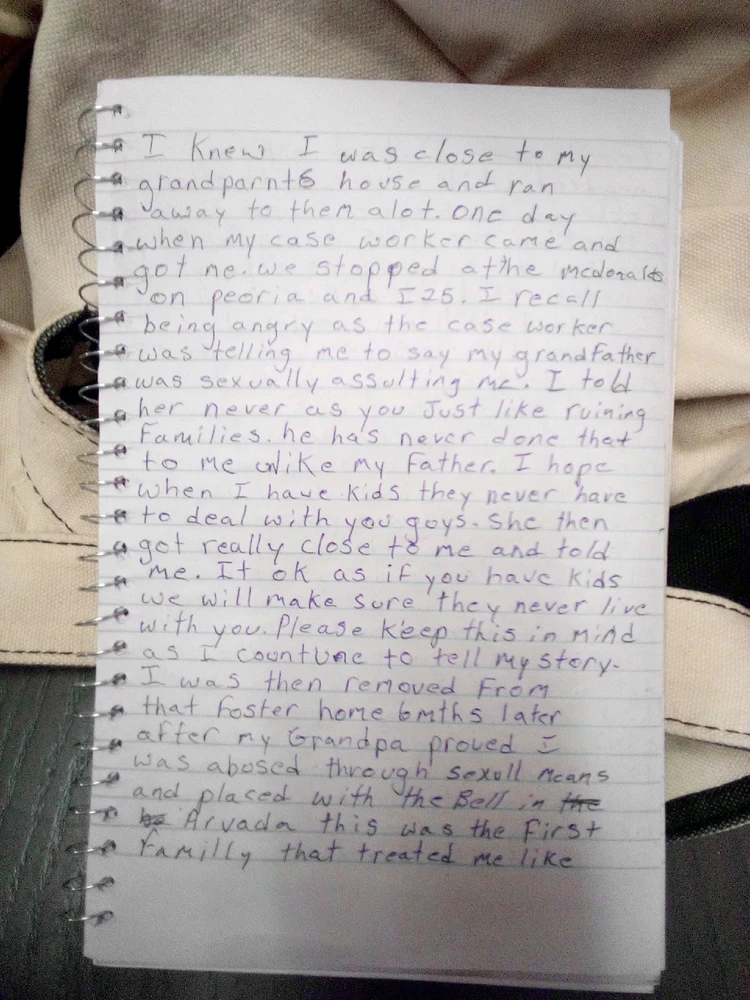 I knew I was close to my
grandparnts house and ran
away to them alot. One day
when my case worker came and
got me. we stopped at the mcdonalds
on peoria and I25. I recall
being angry as the case worker
was telling me to say my grandfather
was sexually assulting me. I told
her never as you Just like ruining
Families. he has never done that
to me unlike my Father. I hope
when I have kids they never have
to deal with you guys. She then
got really close to me and told
me. It ok as if you have kids
we will make sure they never live
with you. Please keep this in mind
as I countune to tell my story.
I was then removed From
that Foster home 6mths later
after my Grandpa proved I
was abused through sexull means
and placed with the Bell in the
Arvada this was the First
Familly that treated me like